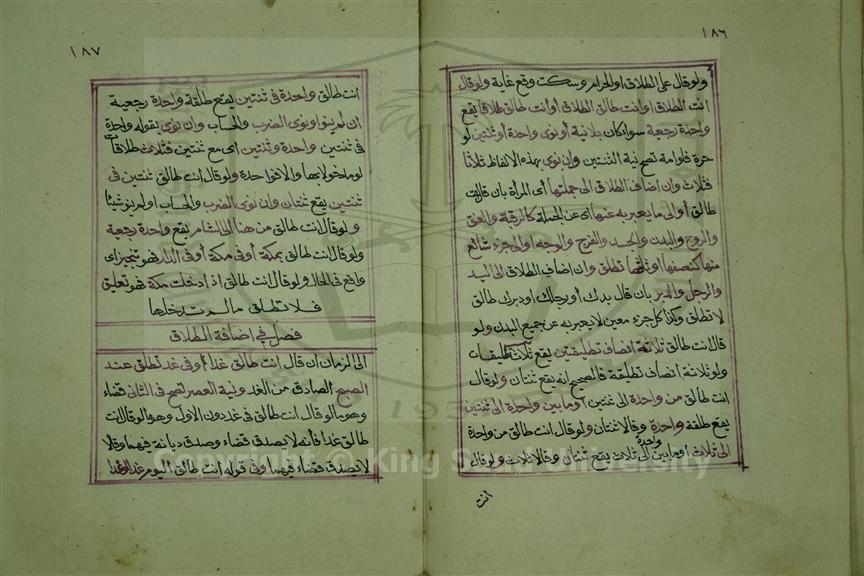 ١٨٦
ولو قال على الطلاق او الحرام وسكت وقع غاية ولو قال
انت الطلاق او انت طالق الطلاق أو انت طالق طلاقا يقع
واحدة رجعية سواء كان بلا نية أو نوى واحدة أو ثنتين لو
حرة فلو امة تصح نية الثنتين وان نوى بهذه الالفاظ ثلاثا
فثلاث وان اضاف الطلاق الى جملتها أى المرأة بان قال انت
طالق أو الى ما يعبر به عنها اى عن الجملة كالرقبة والعنق
والروح والبدن والجسد والفرج والوجه او الى جزء شائع
منها كنصفها أو ثلثها تطلق وان اضاف الطلاق الى اليد
والرجل والدبر بان قال يدك أو رجلك او دبرك طالق
لا تطلق وكذا كل جزء معين لا يعبر به عن جميع البدن ولو
قال انت طالق ثلاثة انصاف تطليقتين يقع ثلاث تطليقات
ولو ثلاثة أنصاف تطليقة فالصحيح انه يقع ثنتان ولو قال
انت طالق من واحدة الى ثنتين أو ما بين واحدة الى ثنتين
يقع طلقة واحدة وقالا ثنتان ولو قال انت طالق من واحدة
الى ثلاث أو ما بين واحدة الى ثلاث يقع ثنتان وقالا ثلاث ولو قال
انت
١٨٧
انت طالق واحدة فى ثنتين يقع طلقة واحدة رجعية
ان لم ينو او نوى الضرب والحساب وان نوى بقوله واحدة
فى ثنتين واحدة وثنتين اى مع ثنتين فثلاث طلاقات
لو مدخولا بها والا فواحدة ولو قال انت طالق ثنتين فى
ثنتين يقع ثنتان وان نوى الضرب والحساب او لم ينو شيئا
ولو قال انت طالق من هنا الى الشام يقع واحدة رجعية
ولو قال انت طالق بمكة أو فى مكة أو فى الدار فهو تنجيز اى
واقع فى الحال ولو قال انت طالق اذا دخلت مكة فهو تعليق
فلا تطلق ما لم تدخلها
فصل فى اضافة الطلاق
الى الزمان ان قال انت طالق غدا أو فى غد تطلق عند
الصبح الصادق من الغد ونية العصر تصح فى الثانى قضاء
وهو ما لو قال انت طالق فى غد دون الاول وهو ما لو قال انت
طالق غدا فأنه لا يصدق قضاء وصدق ديانة فيهما وقالا
لا يصدق قضاء فيهما وفى قوله انت طالق اليوم غدا أو غدا
Copyright © King Saud University
1957